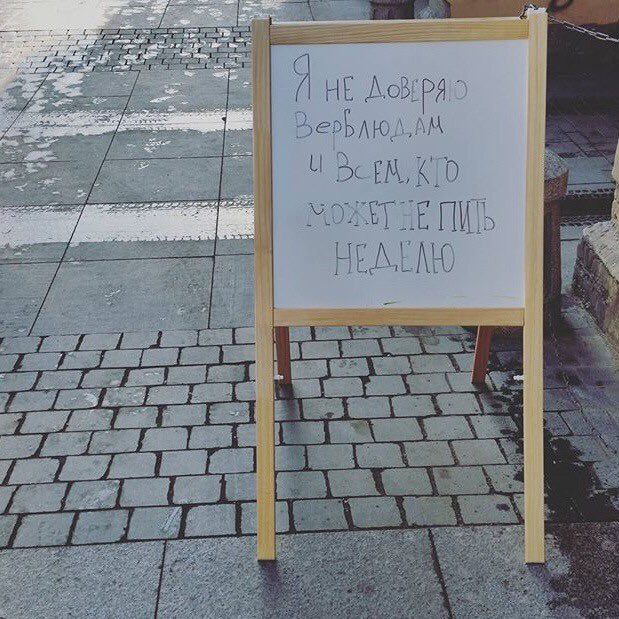 Я НЕ ДОВЕРЯЮ
ВерБлюДАМ
и ВСЕМ, КТО
МОЖЕТ НЕ ПИТЬ
НЕДЕЛЮ